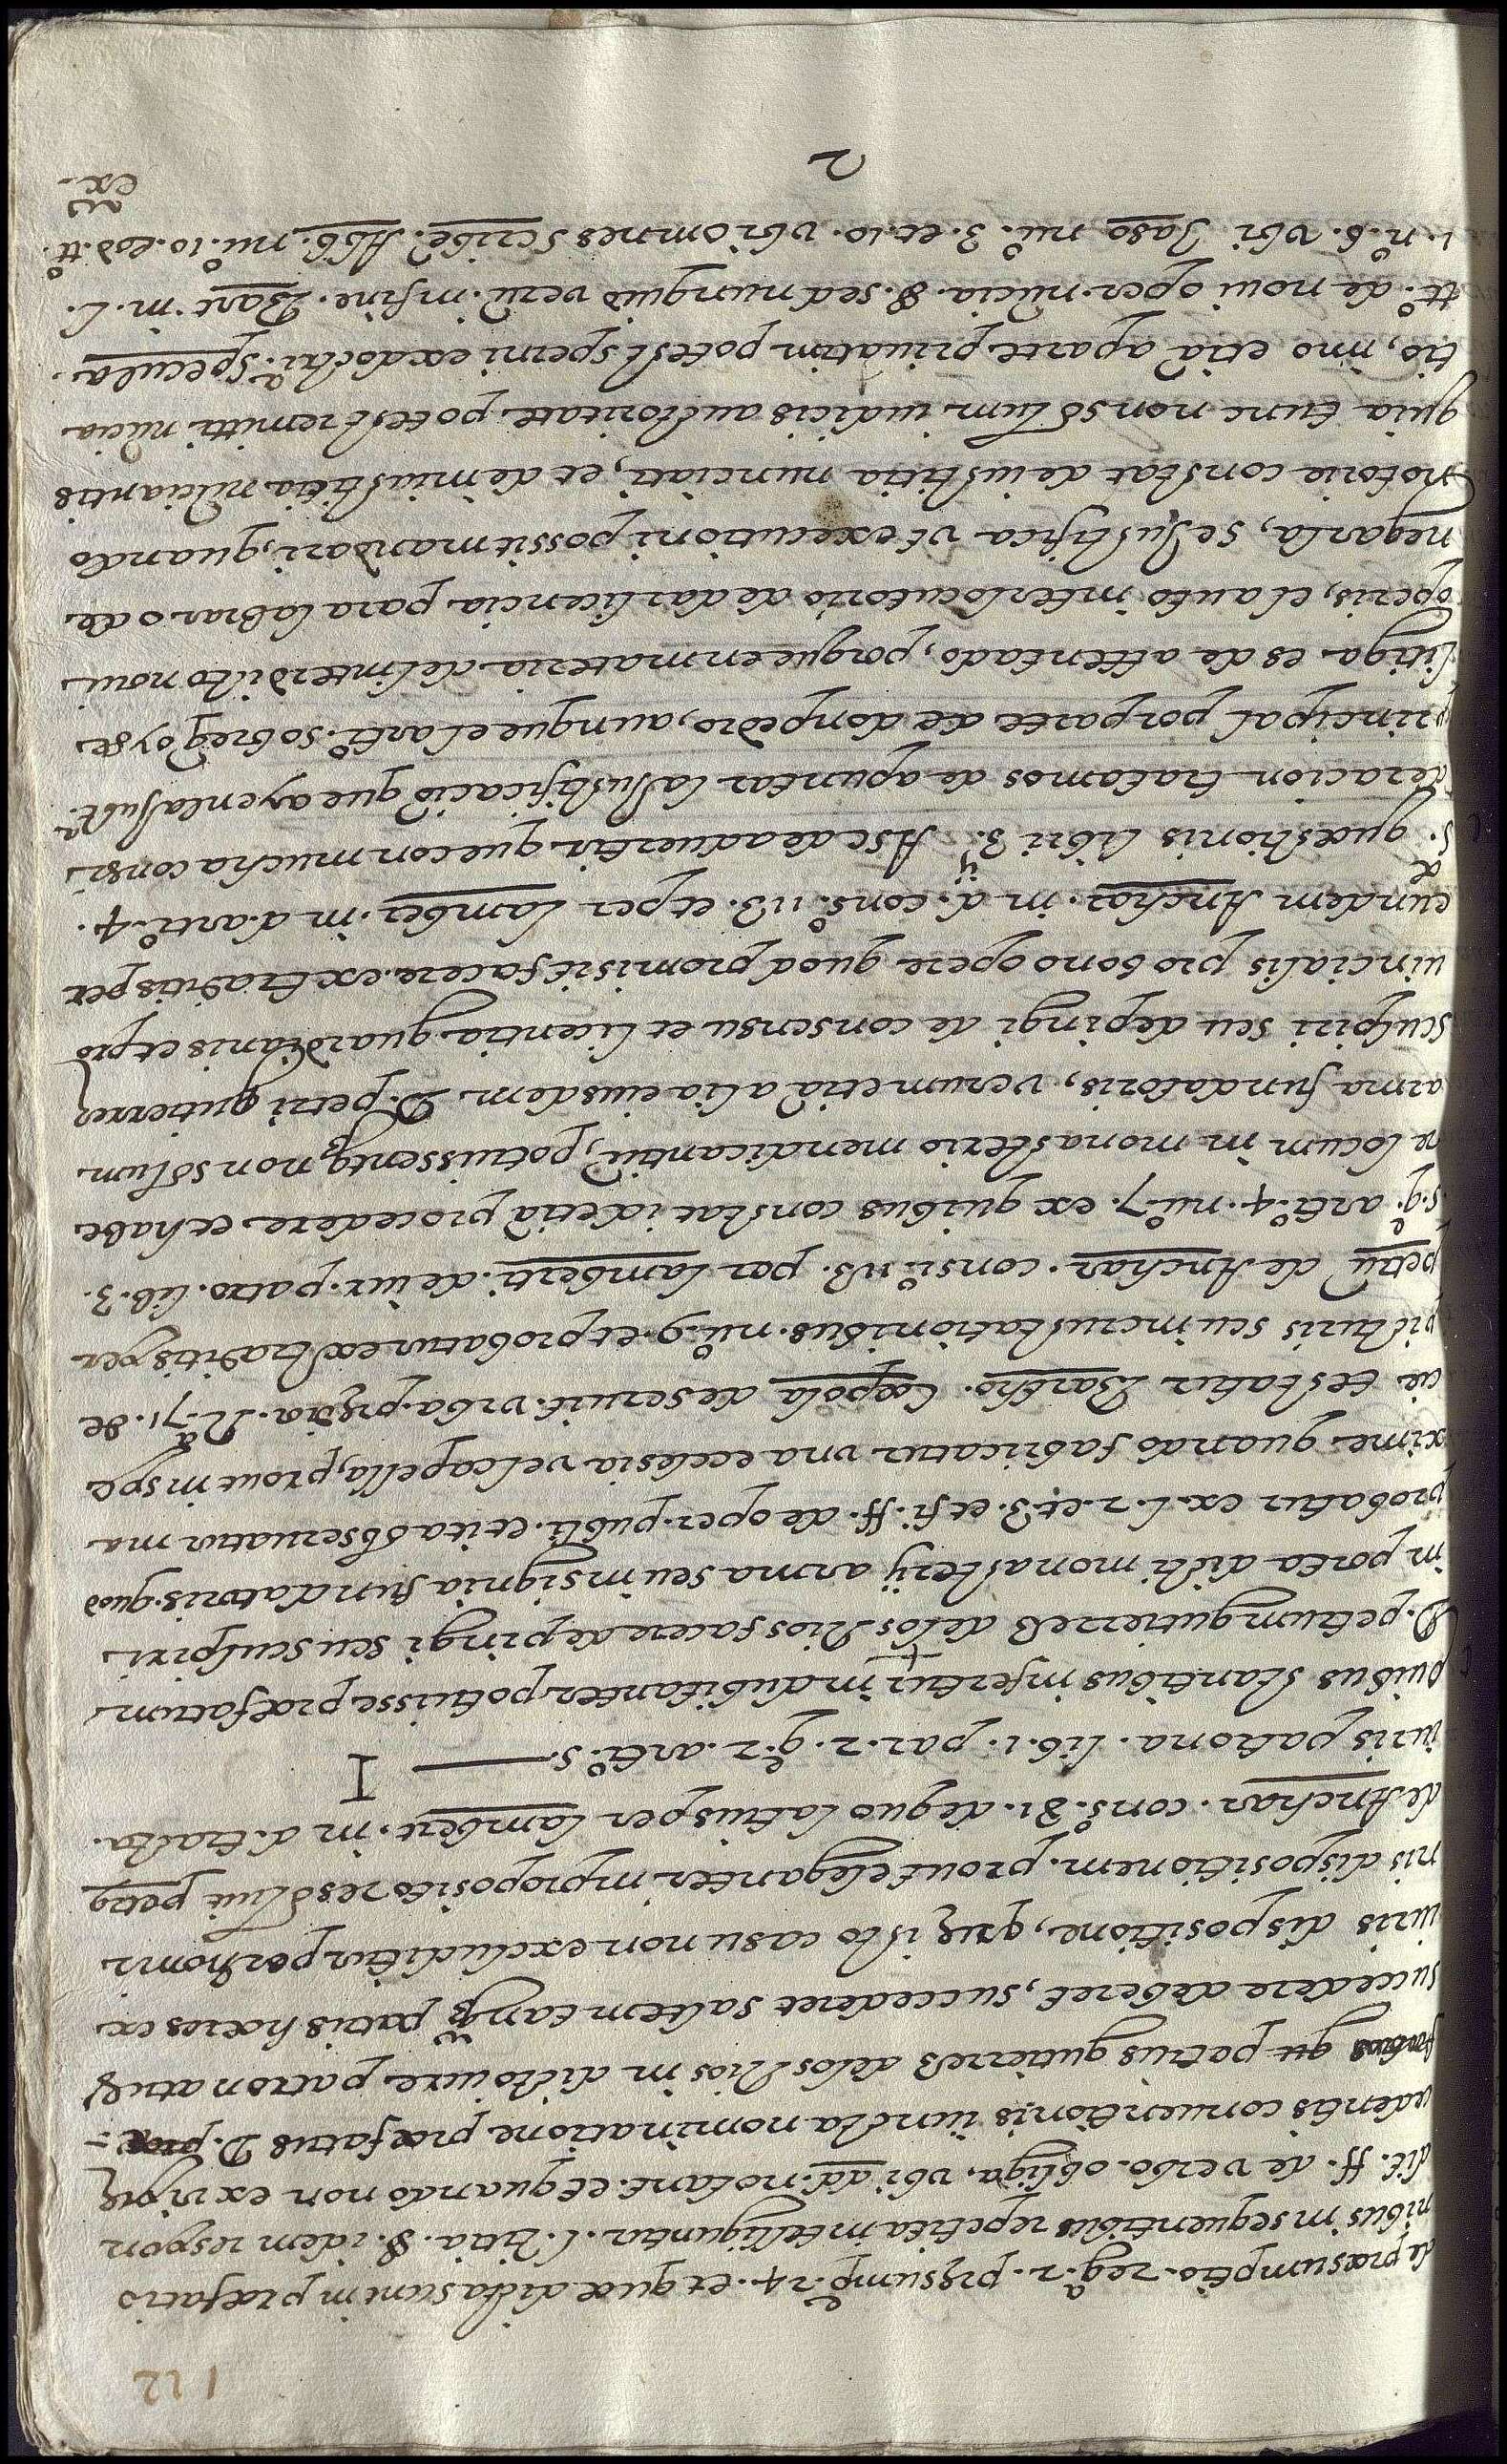 122
de præsumptio. reg.ª 2. pręsump. 24. et quæ dicta sunt in præfatio
nibus in sequentibus repetita intelliguntur. l. titia. §. idem respon
dit. ff. de verbo. obliga. vbi dd. notant. et quando non ex vi præ
cedentis conuentionis iuncta nominatione præfatus D.
petrus gutierreß de los Rios in dicto iure patronatus
succedere deberet, succederet saltem tanq̃ patris hæres ex
iuris dispositione, quę isto casu non excluditur per homi
nis dispositionem. prout eleganter in proposito resoluit petrꝰ
de Anchar. cons.º 81. de quo latius per Lambert. in d. tracta.
iuris patrona. lib. 1. par. 2. q. 2. arti.º 5. — I
quibus stantibus infertur indubitanter potuisse præfatum
D. petrum gutierreß de los Rios facere depingi seu sculpiri
in porta dicti monasterij arma seu insignia fundatoris. quod
probatur ex l. 2. et. 3. et fi. ff. de oper. publi. et ita obseruatur ma
xime quando fabricatur vna ecclesia vel capella, prout in spe
cie testatur Bartho. Cæpola de seruit. vrba. prędia. R.ª 71. de
picturis seu incrustationibus. nu.º 9. et probatur ex traditis per
petrũ de Anchar. consi.º 113. par Lamberti. de iur. patro. lib. 3.
5. q. arti.º 4. nu.º 7. ex quibus constat id etiã procedere et habe
re locum in monasterio mendicantiũ, potuissentq́ non solum
arma fundatoris, verum etiã alia eiusdem D. petri gutierreß
sculpiri seu depingi de consensu et licentia guardianis et pro
uincialis pro bono opere quod promisit facere. ex traditis per
eundem Anchar. in d. cons.º 113. et per Lamber. in d. arti.º 4.
5. quæstionis libri 3.ij Ase de aduertir que con mucha consi
deracion tratamos de apuntar la Justificaciõ que ay en la Just.ª
principal por parte de don pedro, aunque el arti.º sobre q̃ oy se
litiga es de attentado, porque en materia del interdicto noui
operis, el auto interlocutorio de dar licencia para labrar o de
negarla, se Justifica vt executioni possit mandari, quando
notorie constat de iustitia nunciati, et de iniustitia nũciantis
quia tunc non solum iudicis auctoritate potest remitti nũcia
tio, imo etiã a parte priuatim potest sperni ex doctri.ª Specula.
tt.º de noui oper. nũcia. §. sed nunquid verũ. in fine. Bart. in. l.
1. n.º 6. vbi Jaso nu.º 3. et. 10. vbi omnes Scribẽ. Abb. nu.º 10. eod. tt.º
ex.
2